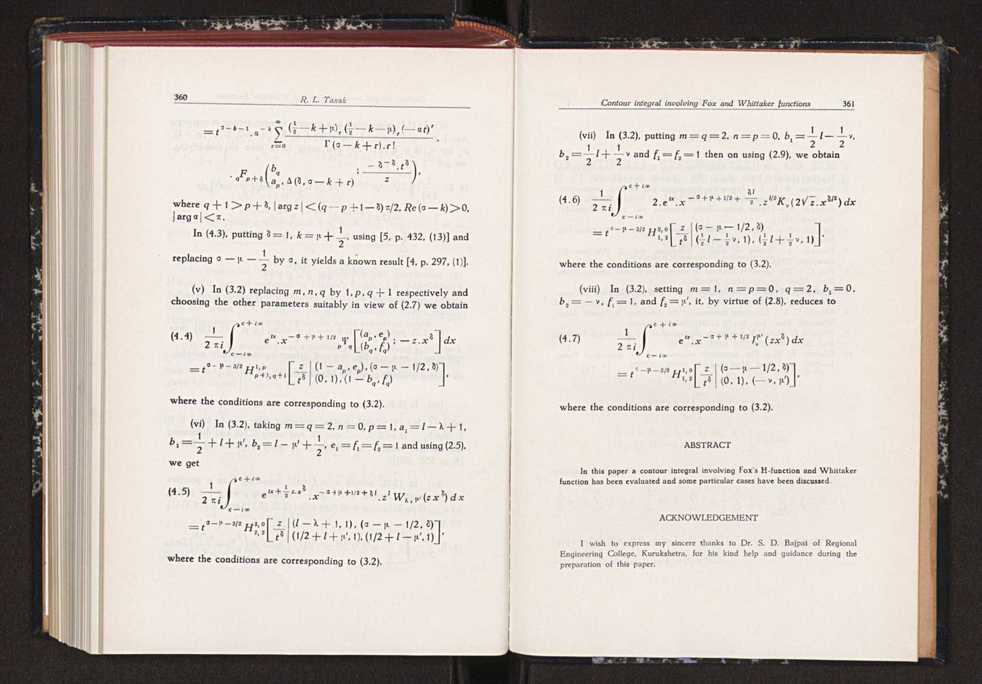 360
R. L. Taxak
= t^{σ-k-1} . a^{-λ} ∑_{r=0}^{∞} (½ - k + μ)_r (½ - k - μ)_r (- αt)^r / Γ(σ - k + r) . r! .
. _qF_{p+δ} ( b_q ; a_p, Δ(δ, σ - k + r) : - δ^{-δ} . t^δ / z ),
where q + 1 > p + δ, | arg z | < (q - p + 1 - δ) π/2, Re (σ - k) > 0,
| arg α | < π.
In (4.3), putting δ = 1, k = μ + 1/2, using [5, p. 432, (13)] and
replacing σ - μ - 1/2 by σ, it yields a known result [4, p. 297, (1)].
(v) In (3.2) replacing m, n, q by 1, p, q + 1 respectively and
choosing the other parameters suitably in view of (2.7) we obtain
(4.4) 1/2πi ∫_{c-i∞}^{c+i∞} e^{tx} . x^{-σ+μ+1/2} _pΨ_q [ (a_p, e_p) (b_q, f_q) ; - z . x^δ ] dx
= t^{σ-μ-3/2} H^{1, p}_{p+1, q+1} [ z / t^δ | (1 - a_p, e_p), (σ - μ - 1/2, δ) (0, 1), (1 - b_q, f_q) ],
where the conditions are corresponding to (3.2).
(vi) In (3.2), taking m = q = 2, n = 0, p = 1, a₁ = l - λ + 1,
b₁ = 1/2 + l + μ', b₂ = l - μ' + 1/2, e₁ = f₁ = f₂ = 1 and using (2.5),
we get
(4.5) 1/2πi ∫_{c-i∞}^{c+i∞} e^{tx + ½ z.x^δ} . x^{-σ+μ+1/2+δl} . z^l W_{λ, μ'} (z x^δ) dx
= t^{σ-μ-3/2} H^{2, 0}_{2, 2} [ z / t^δ | (l - λ + 1, 1), (σ - μ - 1/2, δ) (1/2 + l + μ', 1), (1/2 + l - μ', 1) ],
where the conditions are corresponding to (3.2).
Contour integral involving Fox and Whittaker functions 361
(vii) In (3.2), putting m = q = 2, n = p = 0, b₁ = 1/2 l - 1/2 ν,
b₂ = 1/2 l + 1/2 ν and f₁ = f₂ = 1 then on using (2.9), we obtain
(4.6) 1/2πi ∫_{c-i∞}^{c+i∞} 2 . e^{tx} . x^{-σ+μ+1/2+δl/2} . z^{l/2} K_ν (2√z . x^{δ/2}) dx
= t^{σ-μ-3/2} H^{2, 0}_{1, 2} [ z / t^δ | (σ - μ - 1/2, δ) (½ l - ½ ν, 1), (½ l + ½ ν, 1) ],
where the conditions are corresponding to (3.2).
(viii) In (3.2), setting m = 1, n = p = 0, q = 2, b₁ = 0,
b₂ = - ν, f₁ = 1, and f₂ = μ', it, by virtue of (2.8), reduces to
(4.7) 1/2πi ∫_{c-i∞}^{c+i∞} e^{tx} . x^{-σ+μ+1/2} J_ν^{μ'} (zx^δ) dx
= t^{σ-μ-3/2} H^{1, 0}_{1, 2} [ z / t^δ | (σ - μ - 1/2, δ) (0, 1), (- ν, μ') ],
where the conditions are corresponding to (3.2).
ABSTRACT
In this paper a contour integral involving Fox's H-function and Whittaker
function has been evaluated and some particular cases have been discussed.
ACKNOWLEDGEMENT
I wish to express my sincere thanks to Dr. S. D. Bajpai of Regional
Engineering College, Kurukshetra, for his kind help and guidance during the
preparation of this paper.